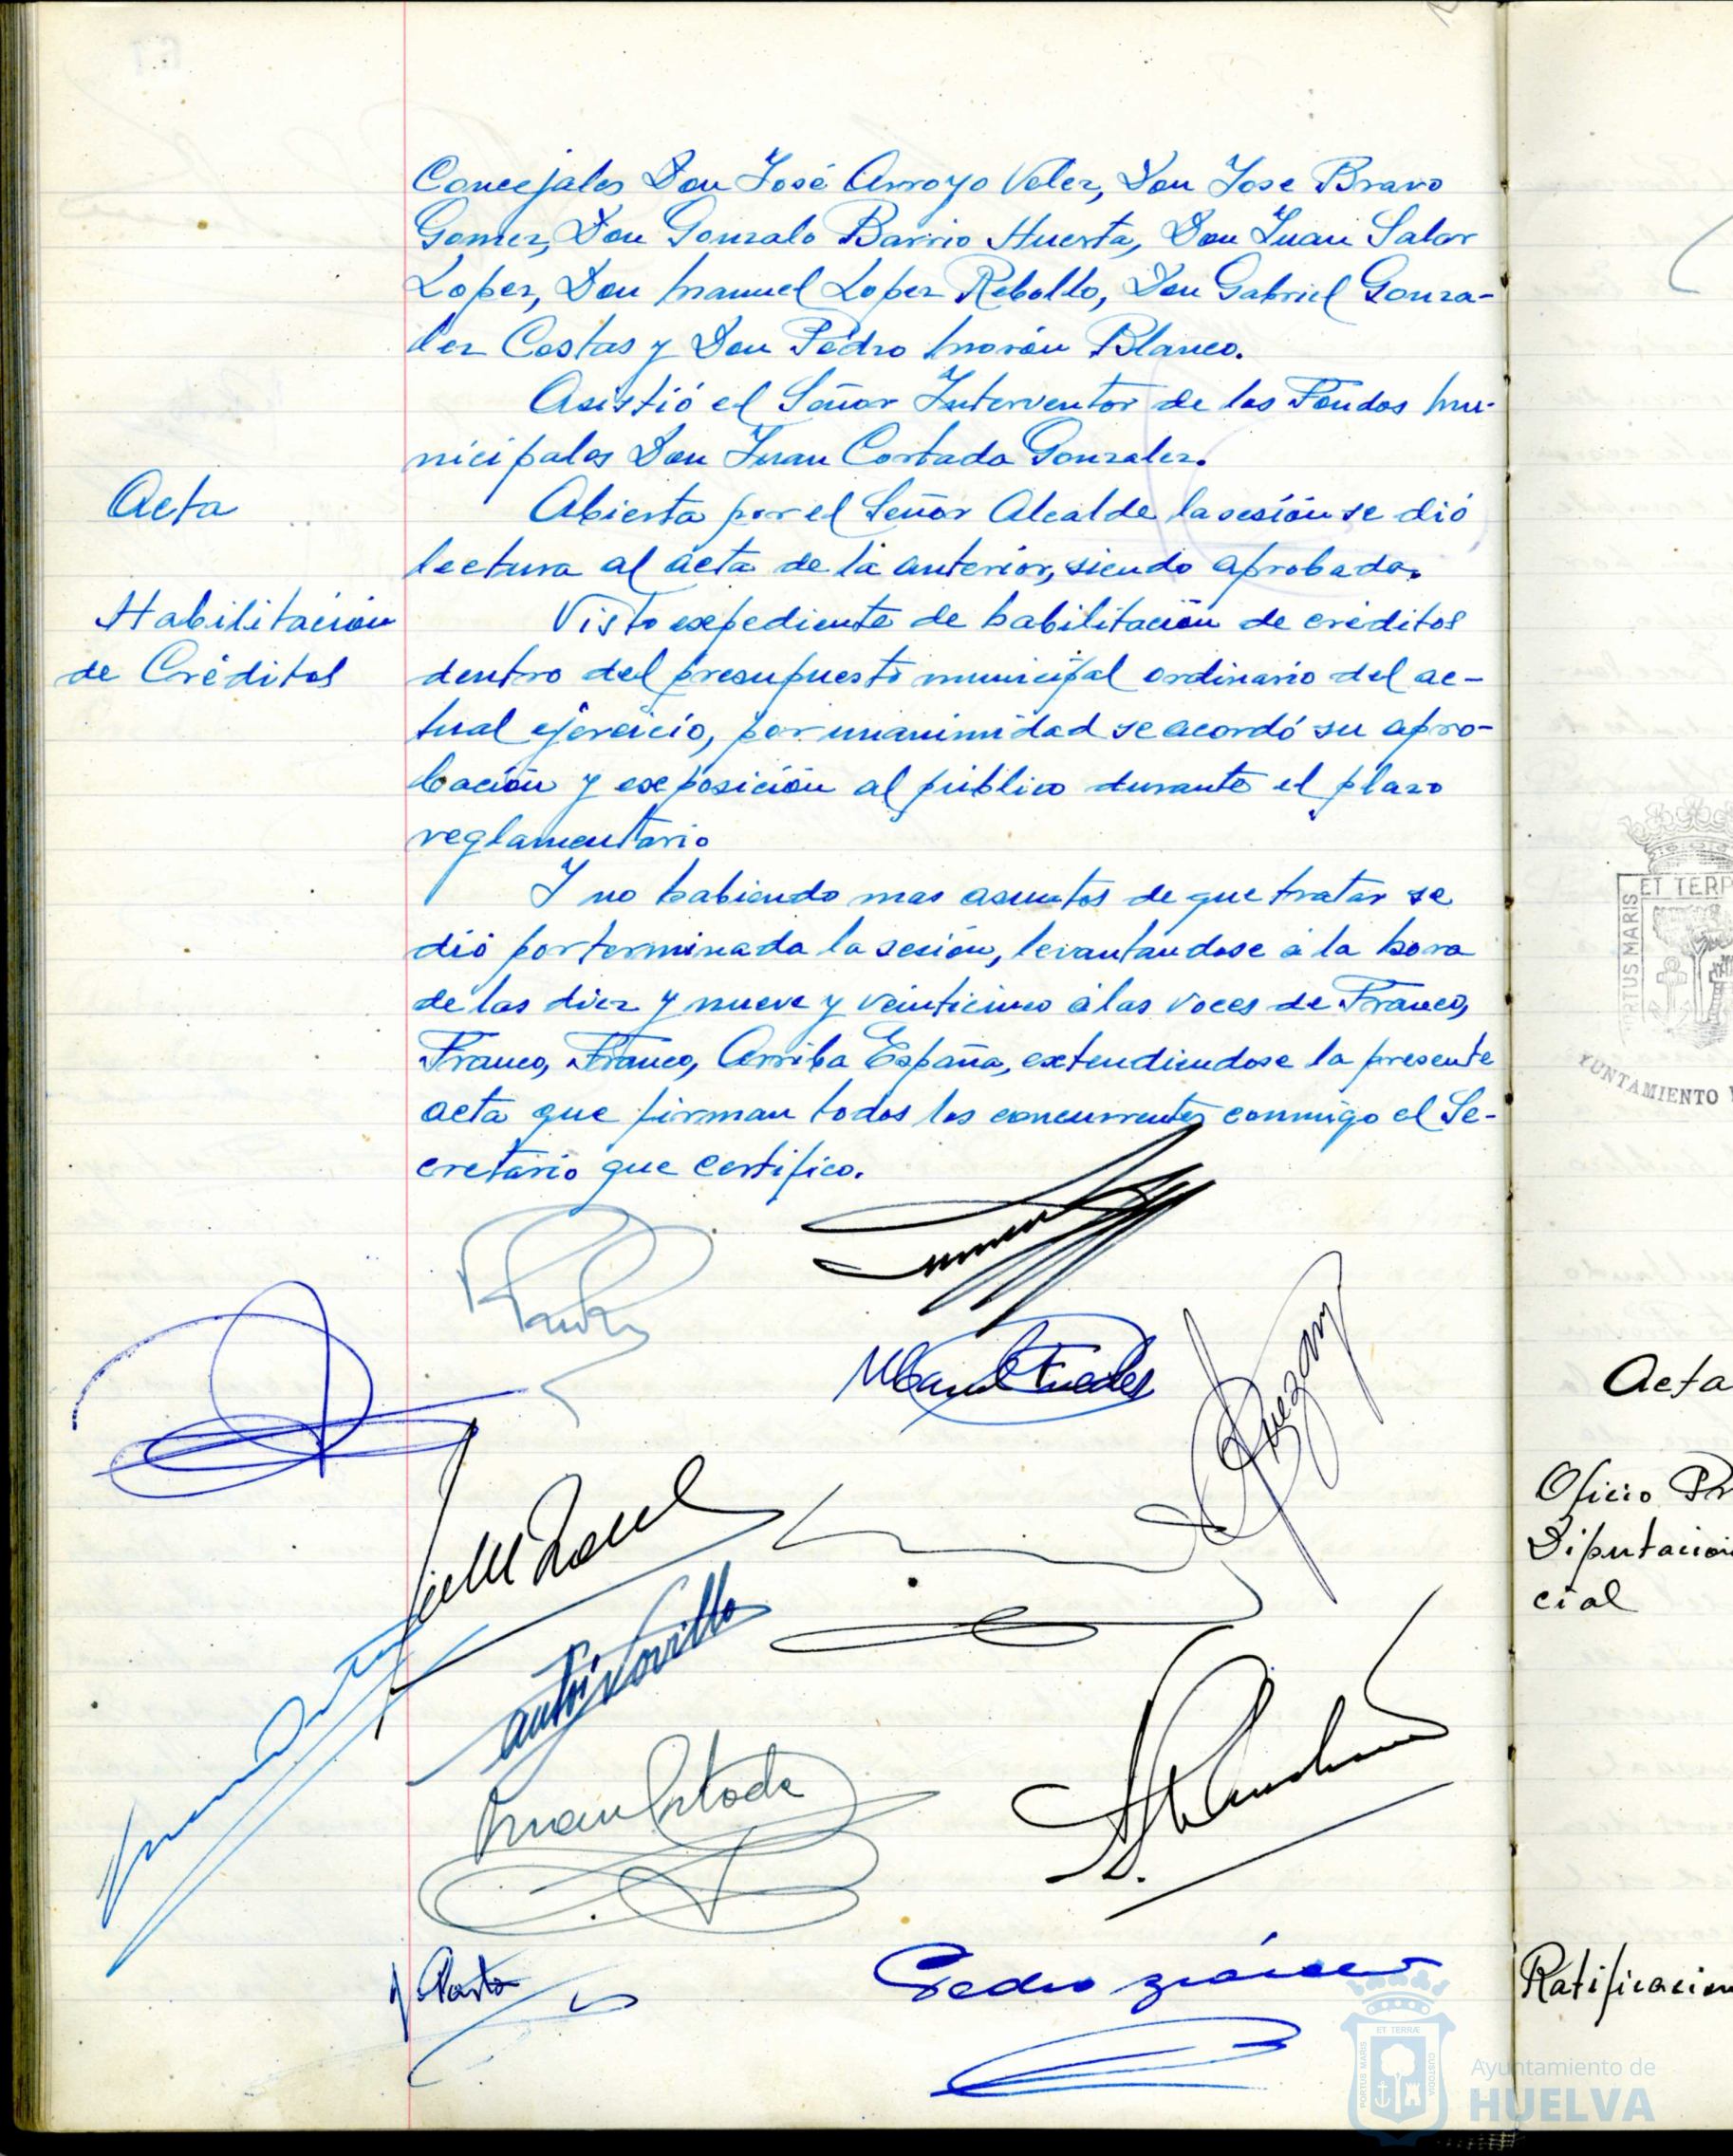 Concejales Don José Arroyo Velez, Don Jose Bravo
Gomez, Don Gonzalo Barrio Huerta, Don Juan Salar
Lopez, Don Manuel Lopez Rebollo, Don Gabriel Gonza-
lez Costas y Don Pedro Morón Blanco.
Asistió el Señor Interventor de los Fondos Mu-
nicipales Don Juan Cortada Gonzalez.
Acta
Abierta por el Señor Alcalde la sesión se dió
lectura al acta de la anterior, siendo aprobada.
Habilitación
de Créditos
Visto expediente de habilitación de créditos
dentro del presupuesto municipal ordinario del ac-
tual ejercicio, por unanimidad se acordó su apro-
bación y exposición al público durante el plazo
reglamentario
Y no habiendo mas asuntos de que tratar se
dió por terminada la sesión, levantandose á la hora
de las diez y nueve y veinticinco á las voces de Franco,
Franco, Franco, Arriba España, extendiendose la presente
acta que firman todos los concurrentes conmigo el Se-
cretario que certifico.
Pedro
ET TERR
PORTUS MARIS
YUNTAMIENTO
Acta
Oficio Pr
Diputacion
cial
Ratificacion
ET TERRÆ
PORTUS MARIS
CUSTODIA
Ayuntamiento de
HUELVA